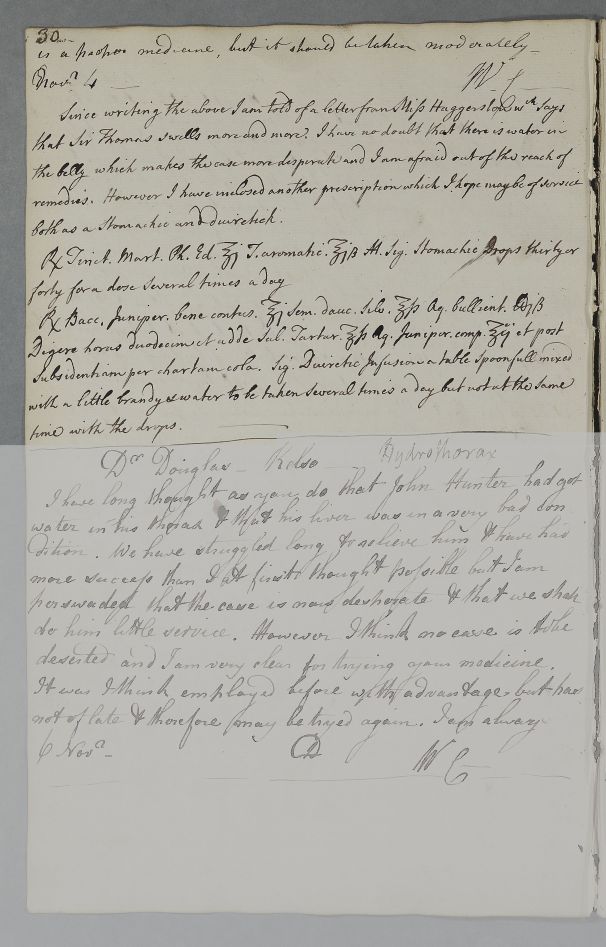 30
is a proper medicine, but it should be taken moderately—
Novr. 4 — W C
Since writing the above I am told of a letter from Miss Haggerston wch. says
that Sir Thomas swells more and more. I have no doubt that there is water in
the belly which makes the case more desperate and I am afraid out of the reach of
remedies. However I have inclosed another prescription which I hope may be of service
both as a stomachic and diuretick.
℞ Tinct. Mart. Ph. Ed. ℥j T. aromatic. ℥jß M. Sig. Stomachic Drops thirty or
forty for a dose several times a day
℞ Bacc. Juniper. bene contus. ℥j Sem. dauc. Silv. ℥ß Aq. bullient. ℔jß
Digere horas duodecim et adde Sal. Tartar. ℥ß Aq. Juniper. comp. ℥ij et post
Subsidentiam per chartam cola. Sig. Diuretic Infusion a table spoonfull mixed
with a little brandy & water to be taken several times a day but not at the same
time with the drops.
Dr Douglas — Kelso — Hydrothorax
I have long thought as you do that John Hunter had got
water in his thorax & that his liver was in a very bad con
dition. We have struggled long to relieve him & have had
more success than I at first thought possible but I am
perswaded that the case is now desperate & that we shall
do him little service. However I think no case is to be
deserted and I am very clear for trying your medicine.
It was I think employed before with advantage but has
not of late & therefore may be tryed again. I am always
6 Novr. — W C —